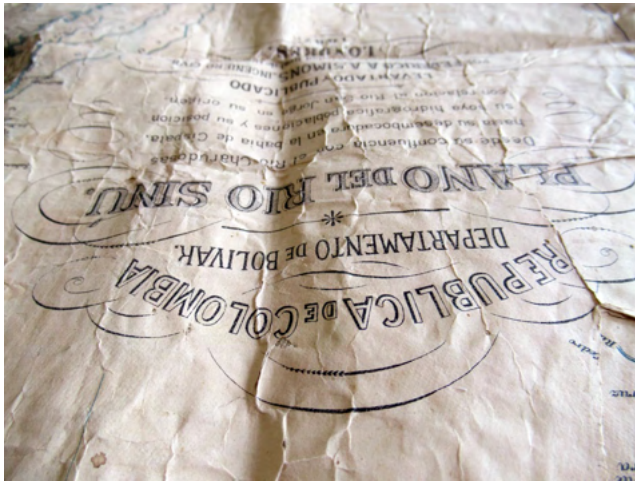 REPUBLICA DE COLOMBIA
DEPARTAMENTO DE BOLIVAR.
PLANO DEL RIO SINÚ.
Desde su confluencia con el Rio
hasta su desembocadura en la bahia de Cispata,
su hoya hidrografica, poblaciones y su posicion
con relacion al Rio San Jorge en su origen.
LEVANTADO Y PUBLICADO
POR FEDERICO A. A. SIMONS, INGENIERO CIVIL
LONDRES.